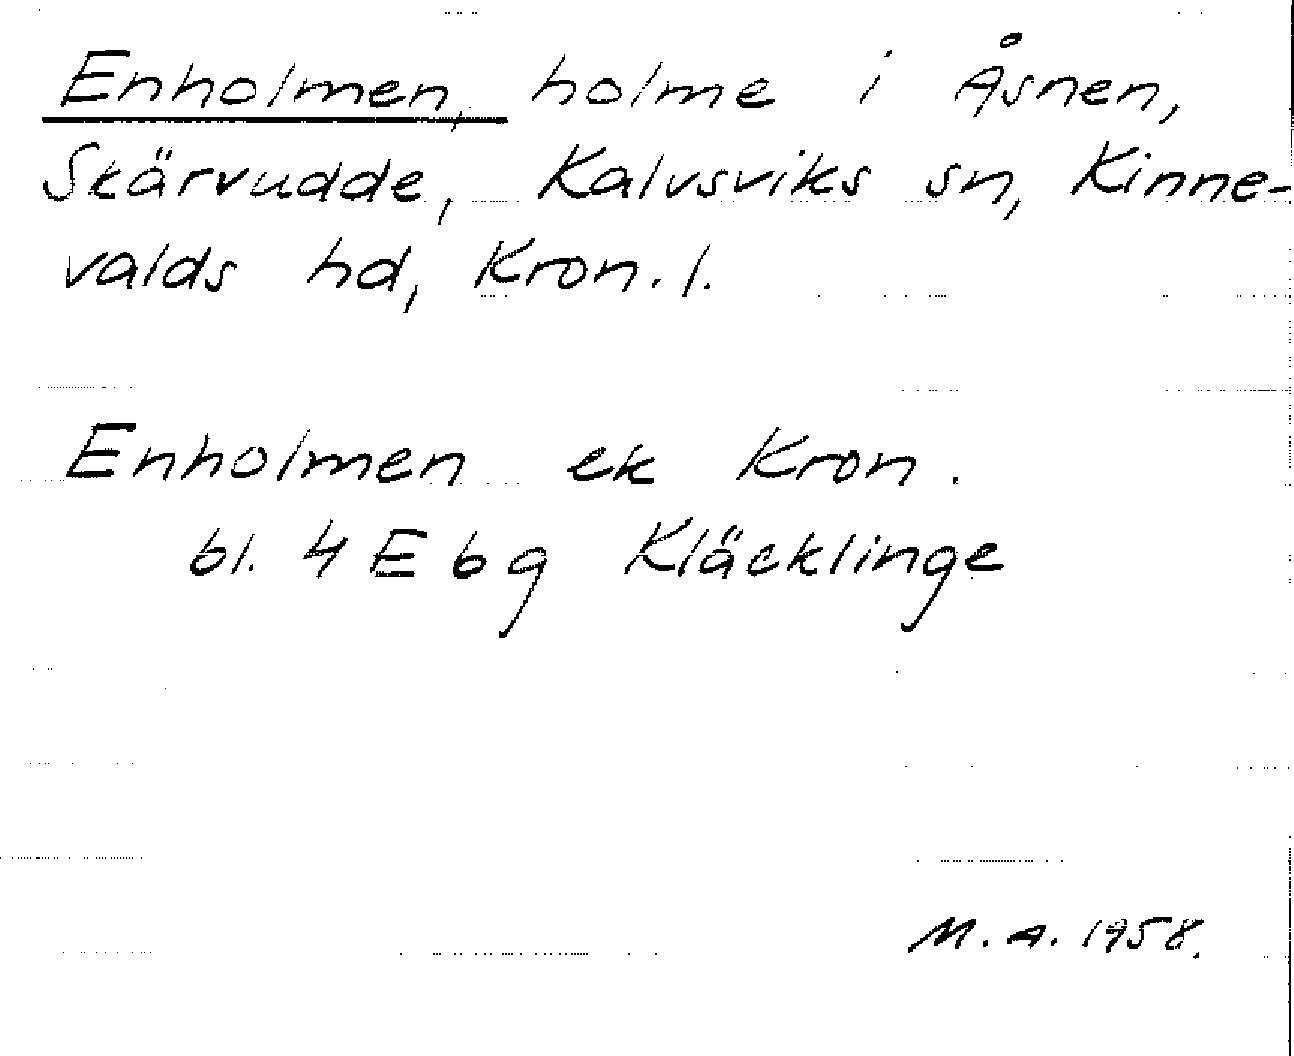 Enholmen, holme i Åsnen,
Skärvudde, Kalvsviks sn, Kinne-
valds hd, Kron. l.
Enholmen ek Kron.
bl. 4 E b g Kläcklinge
M. A. 1958.